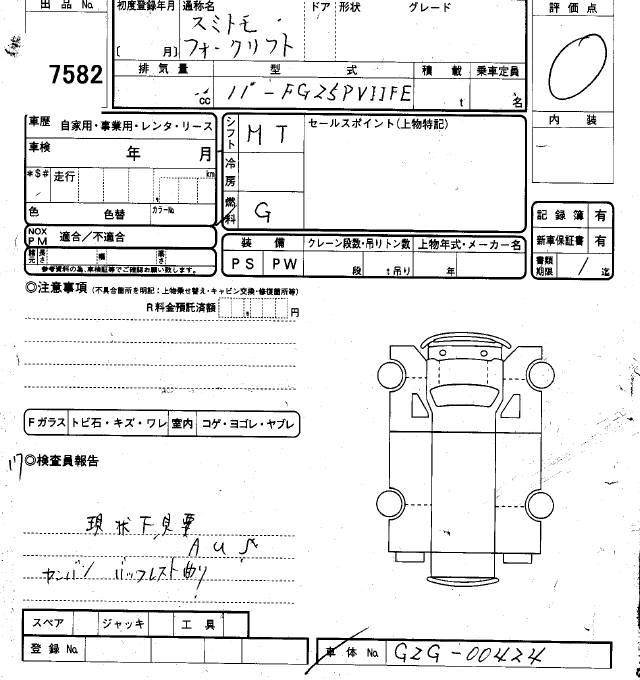 出品 No. 初度登録年月 通称名 ドア 形状 グレード 評価点
スミトモ
〔 月〕 フォークリフト
7582 排気量 型式 積載 乗車定員
cc t 名
車歴 自家用・事業用・レンタ・リース シフト MT セールスポイント(上物特記) 内装
車検 年 月
*$# 走行 km 冷房
色 色替 カラーNo. 燃料 G
NOX PM 適合/不適合 装備 クレーン段数・吊りトン数 上物年式・メーカー名 記録簿 有
PS PW 段 t吊り 年 新車保証書 有
参考資料の為、車検証等でご確認お願い致します。 書類期限 / 迄
◎注意事項 (不具合箇所を明記:上物乗せ替え・キャビン交換・修復箇所等)
R料金預託済額 円
Fガラス トビ石・キズ・ワレ 室内 コゲ・ヨゴレ・ヤブレ
◎検査員報告
現状下見要
バックレスト曲り
スペア ジャッキ 工具
登録 No. 車体 No. GZG-00424